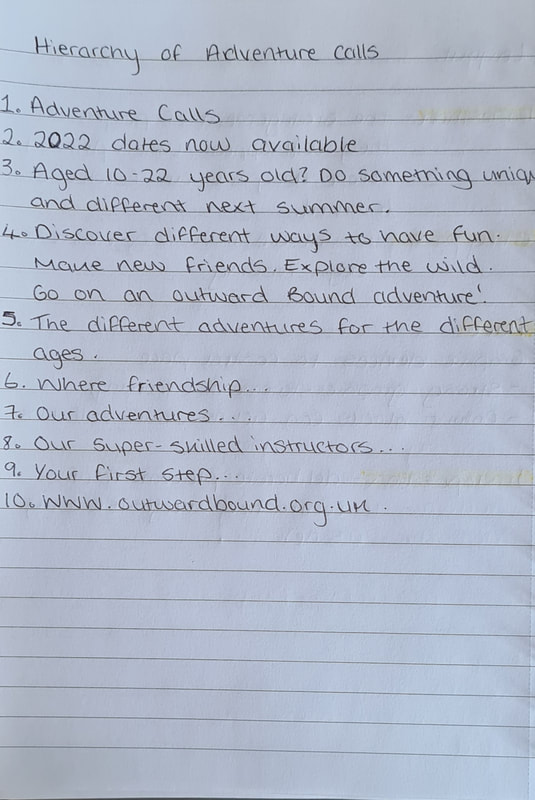 Hierarchy of Adventure Calls
1. Adventure Calls
2. 2022 dates now available
3. Aged 10-22 years old? Do something uniqu
and different next summer.
4. Discover different ways to have fun.
Make new friends. Explore the wild.
Go on an outward Bound adventure!
5. The different adventures for the different
ages.
6. Where friendship...
7. Our adventures...
8. Our super-skilled instructors...
9. Your first step...
10. www.outwardbound.org.uk.